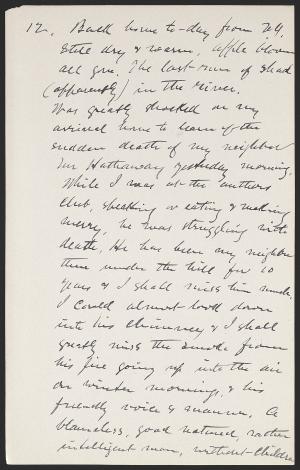 12. Back home to-day from N.Y.
Still dry & warm, apple bloom
all gone. The last run of shad
(apparently) in the river.
Was greatly shocked on my
arrival home to learn of the
sudden death of my neighbor
Mr Hathaway yesterday morning.
While I was at the authors
club, speaking or eating & making
merry, he was struggling with
death. He has been my neighbor
there under the hill for 10
years & I shall miss him much.
I could almost look down
into his chimney & I shall
greatly miss the smoke from
his fire going up into the air
on winter mornings, & his
friendly voice & manner. A
blameless, good natured, rather
intelligent man, without children